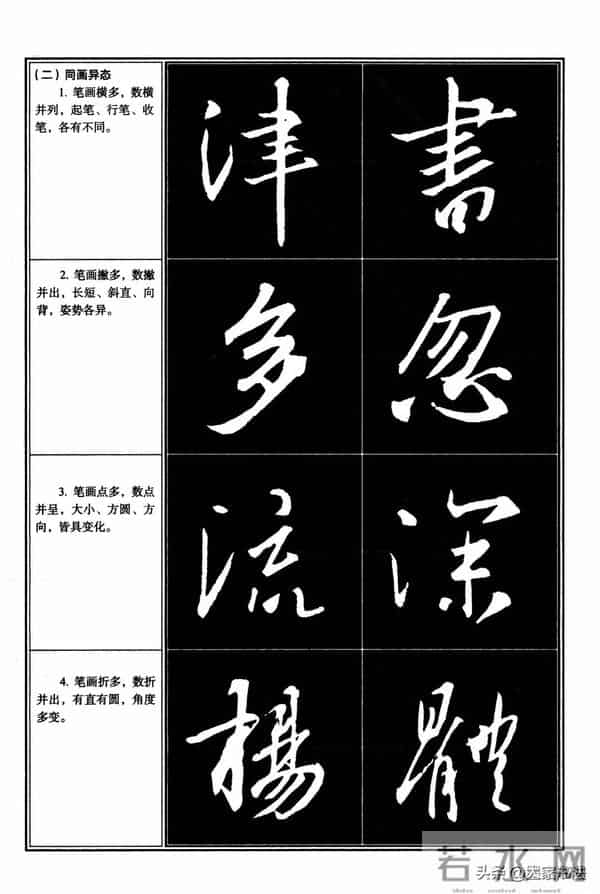 （二）同画异态
1. 笔画横多，数横
并列，起笔、行笔、收
笔，各有不同。
津 書
2. 笔画撇多，数撇
并出，长短、斜直、向
背，姿势各异。
多 忽
3. 笔画点多，数点
并呈，大小、方圆、方
向，皆具变化。
流 深
4. 笔画折多，数折
并出，有直有圆，角度
多变。
楊 體
若水网
头条